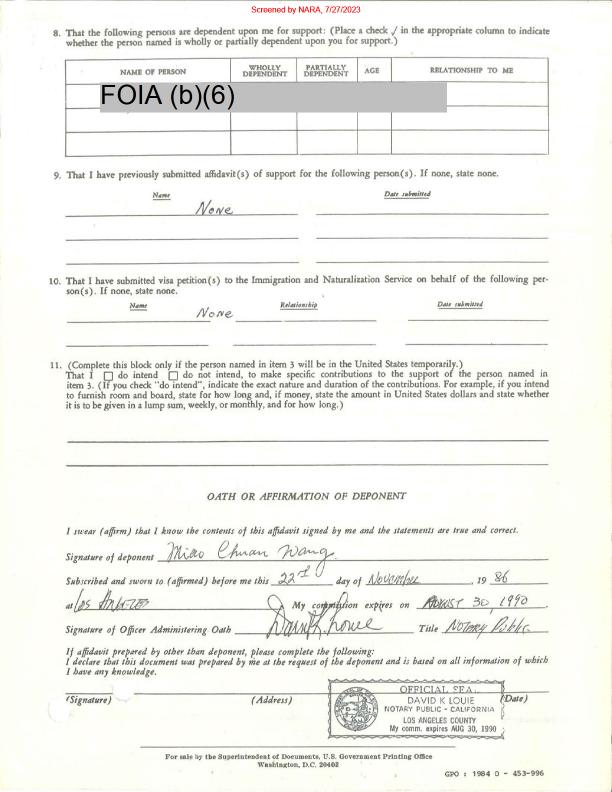 Screened by NARA, 7/27/2023
8. That the following persons are dependent upon me for support: (Place a check √ in the appropriate column to indicate
whether the person named is wholly or partially dependent upon you for support.)
NAME OF PERSON WHOLLY DEPENDENT PARTIALLY DEPENDENT AGE RELATIONSHIP TO ME
FOIA (b)(6)
9. That I have previously submitted affidavit(s) of support for the following person(s). If none, state none.
Name Date submitted
None
10. That I have submitted visa petition(s) to the Immigration and Naturalization Service on behalf of the following per-
son(s). If none, state none.
Name Relationship Date submitted
None
11. (Complete this block only if the person named in item 3 will be in the United States temporarily.)
That I ☐ do intend ☐ do not intend, to make specific contributions to the support of the person named in
item 3. (If you check "do intend", indicate the exact nature and duration of the contributions. For example, if you intend
to furnish room and board, state for how long and, if money, state the amount in United States dollars and state whether
it is to be given in a lump sum, weekly, or monthly, and for how long.)
OATH OR AFFIRMATION OF DEPONENT
I swear (affirm) that I know the contents of this affidavit signed by me and the statements are true and correct.
Signature of deponent Miao Chuan Wang
Subscribed and sworn to (affirmed) before me this 22nd day of November, 1986
at Los Angeles My commission expires on August 30, 1990.
Signature of Officer Administering Oath David K. Louie Title Notary Public
If affidavit prepared by other than deponent, please complete the following:
I declare that this document was prepared by me at the request of the deponent and is based on all information of which
I have any knowledge.
(Signature) (Address) (Date)
OFFICIAL SEAL
DAVID K LOUIE
NOTARY PUBLIC - CALIFORNIA
LOS ANGELES COUNTY
My comm. expires AUG 30, 1990
For sale by the Superintendent of Documents, U.S. Government Printing Office
Washington, D.C. 20402
GPO : 1984 O - 453-996